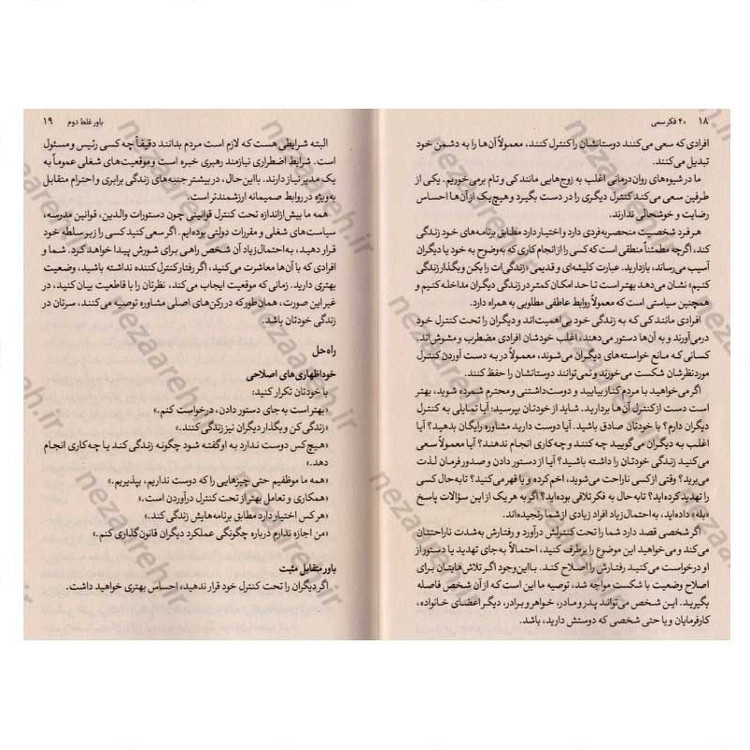 ۱۸ ۲۰ فکر سمی
افرادی که سعی می‌کنند دوستانشان را کنترل کنند، معمولاً آن‌ها را به دشمن خود
تبدیل می‌کنند.
ما در شیوه‌های روان‌درمانی اغلب به زوج‌هایی مانند کی و تام برمی‌خوریم. یکی از
طرفین سعی می‌کند کنترل دیگری را در دست بگیرد و هیچ‌یک از آن‌ها احساس
رضایت و خوشحالی ندارند.
هر فرد شخصیت منحصربه‌فردی دارد و اختیار دارد مطابق برنامه‌های خود زندگی
کند، اگرچه مطمئناً منطقی است که کسی را از انجام کاری که به‌وضوح به خود یا دیگران
آسیب می‌رساند، بازدارید. عبارت کلیشه‌ای و قدیمی «زندگی‌ات را بکن و بگذار زندگی
کنیم» نشان می‌دهد بهتر است تا حد امکان کمتر در زندگی دیگران مداخله کنیم و
همچنین سیاستی است که معمولاً روابط عاطفی مطلوبی به همراه دارد.
افرادی مانند کی که به زندگی خود بی‌اهمیت‌اند و دیگران را تحت کنترل خود
درمی‌آورند و به آن‌ها دستور می‌دهند، اغلب خودشان افرادی مضطرب و مشوش‌اند.
کسانی که مانع خواسته‌های دیگران می‌شوند، معمولاً در به دست آوردن کنترل
موردنظرشان شکست می‌خورند و نمی‌توانند دوستانشان را حفظ کنند.
اگر می‌خواهید با مردم کنار بیایید و دوست‌داشتنی و محترم شمرده شوید، بهتر
است دست از کنترل آن‌ها بردارید. شاید از خودتان بپرسید: آیا تمایلی به کنترل
دیگران دارم؟ با خودتان صادق باشید. آیا دوست دارید مشاوره رایگان بدهید؟ آیا
اغلب به دیگران می‌گویید چه کنند و چه کاری انجام ندهند؟ آیا معمولاً سعی
می‌کنید زندگی خودتان را داشته باشید؟ آیا از دستور دادن و صدور فرمان لذت
می‌برید؟ وقتی از کسی ناراحت می‌شوید، اخم کرده و یا قهر می‌کنید؟ تابه‌حال کسی
را تهدید کرده‌اید؟ تابه‌حال به فکر تلافی بوده‌اید؟ اگر به هر یک از این سؤالات پاسخ
«بله» داده‌اید، به‌احتمال‌زیاد افراد زیادی از شما رنجیده‌اند.
اگر شخصی قصد دارد شما را تحت کنترلش درآورد و رفتارش به‌شدت ناراحتتان
می‌کند و می‌خواهید این موضوع را برطرف کنید، احتمالاً به‌جای تهدید یا دستور از
او درخواست می‌کنید رفتارش را اصلاح کند. بااین‌وجود اگر تلاش‌هایتان برای
اصلاح وضعیت با شکست مواجه شد، توصیه ما این است که از آن شخص فاصله
بگیرید. این شخص می‌تواند پدر و مادر، خواهر و برادر، دیگر اعضای خانواده،
کارفرمایان و یا حتی شخصی که دوستش دارید، باشد.
باور غلط دوم ۱۹
البته شرایطی هست که لازم است مردم بدانند دقیقاً چه کسی رئیس و مسئول
است. شرایط اضطراری نیازمند رهبری خبره است و موقعیت‌های شغلی عموماً به
یک مدیر نیاز دارند. بااین‌حال، در بیشتر جنبه‌های زندگی برابری و احترام متقابل
به‌ویژه در روابط صمیمانه ارزشمندتر است.
همه ما بیش‌ازاندازه تحت کنترل قوانینی چون دستورات والدین، قوانین مدرسه،
سیاست‌های شغلی و مقررات دولتی بوده‌ایم. اگر سعی کنید کسی را زیر سلطه خود
قرار دهید، به‌احتمال‌زیاد آن شخص راهی برای شورش پیدا خواهد کرد. شما و
افرادی که با آن‌ها معاشرت می‌کنید، اگر رفتار کنترل‌کننده نداشته باشید، وضعیت
بهتری دارید. زمانی که موقعیت ایجاب می‌کند، نظرتان را با قاطعیت بیان کنید، در
غیر این صورت، همان‌طور که در رکن‌های اصلی مشاوره توصیه می‌کنند، سرتان در
زندگی خودتان باشد.
راه‌حل
خوداظهاری‌های اصلاحی
با خودتان تکرار کنید:
«بهتر است به‌جای دستور دادن، درخواست کنم.»
«زندگی کن و بگذار دیگران نیز زندگی کنند.»
«هیچ‌کس دوست ندارد به او گفته شود چگونه زندگی کند یا چه کاری انجام
دهد.»
«همه ما موظفیم حتی چیزهایی را که دوست نداریم، بپذیریم.»
«همکاری و تعامل بهتر از تحت کنترل درآوردن است.»
«هر کس اختیار دارد مطابق برنامه‌هایش زندگی کند.»
«من اجازه ندارم درباره چگونگی عملکرد دیگران قانون‌گذاری کنم.»
باور متقابل مثبت
اگر دیگران را تحت کنترل خود قرار ندهید، احساس بهتری خواهید داشت.
nezaareh.ir